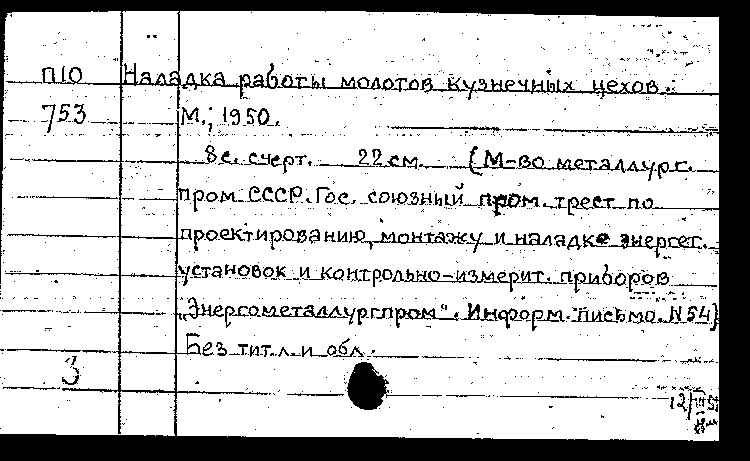 П10 Наладка работы молотов кузнечных цехов.
753 М., 1950.
8с. счерт. 22см. (М-во металлург.
пром. СССР. Гос. союзный пром. трест по
проектированию, монтажу и наладке энергет.
установок и контрольно-измерит. приборов
„Энергометаллургпром". Информ. письмо. N54)
Без тит. л. и обл.
3
12/III 51